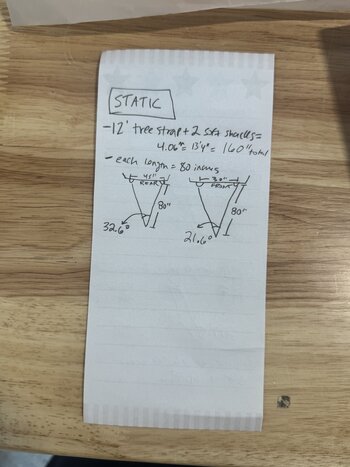 STATIC
-12' tree strap + 2 soft shackles =
4.06m = 13'4" = 160" total
- each length = 80 inches
45"
REAR
80"
32.6°
30"
FRONT
80"
21.6°